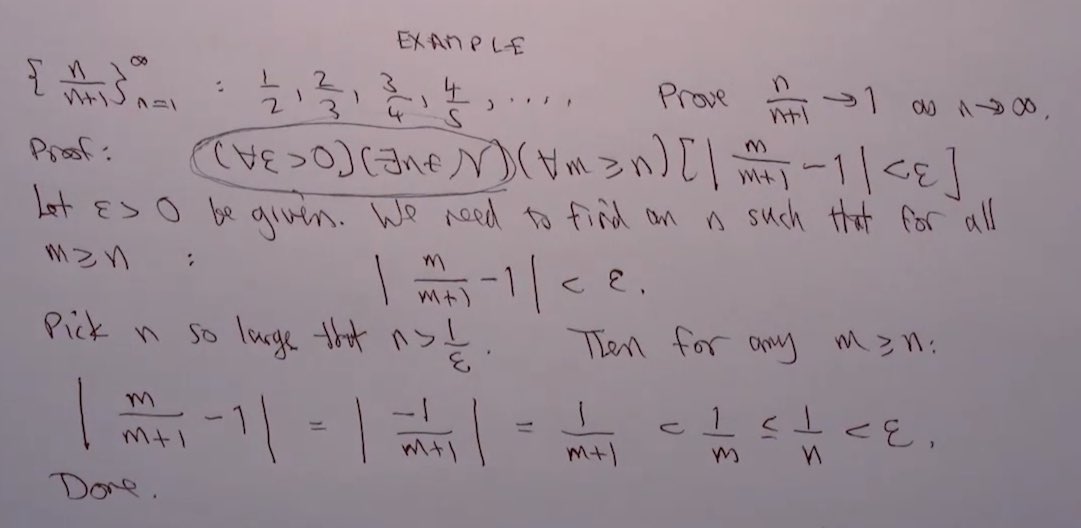 EXAMPLE
{n/(n+1)}_{n=1}^∞ : 1/2, 2/3, 3/4, 4/5, .... Prove n/(n+1) → 1 as n → ∞.
Proof: (∀ε > 0)(∃n ∈ N)(∀m ≥ n)[|m/(m+1) - 1| < ε]
Let ε > 0 be given. We need to find an n such that for all
m ≥ n :
|m/(m+1) - 1| < ε.
Pick n so large that n > 1/ε. Then for any m ≥ n:
|m/(m+1) - 1| = |-1/(m+1)| = 1/(m+1) < 1/m ≤ 1/n < ε.
Done.